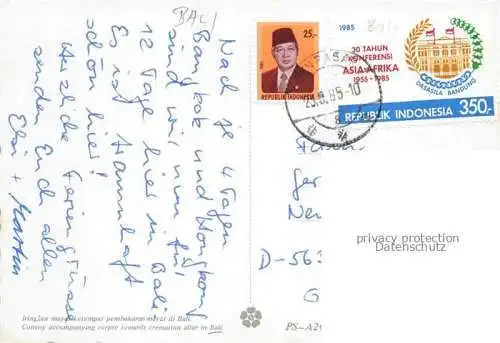 BALI
Nach je 4 Tagen
Bangkok und Hongkong
sind wir nun für
12 Tage hier in Bali.
Es ist traumhaft
schön hier!
Herzliche Feriengrüsse
senden Euch allen
Elsi + Martin
Iringan mayat ketempat pembakaran mayat di Bali.
Convoy accompanying corpse towards cremation altar in Bali.
25,-
REPUBLIK INDONESIA
1985
30 TAHUN
KONFERENSI
ASIA-AFRIKA
1955-1985
DASASILA BANDUNG
REPUBLIK INDONESIA 350,-
PASAR
.85-10
Ger
D-563
G
PS-A2
privacy protection
Datenschutz